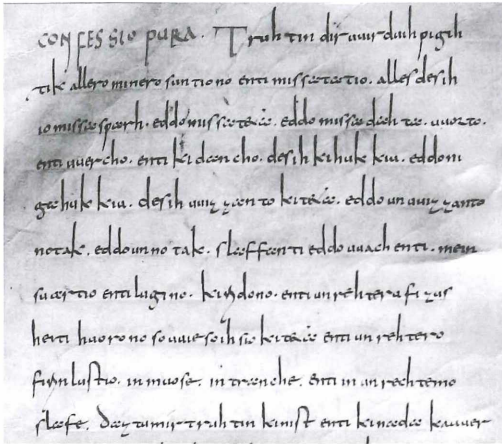 CONFESSIO PURA. Truhtin dir uuirduih pigih
tik allero minero suntiono enti missatatio. alles desih
io missasprah. eddo missateta. eddo missadahta. uuorto.
enti uuercho. enti kidancho. desih kihukkiu. eddo ni
gahukkiu. desih uuizzanto kiteta. eddo unuuizzanto
notak. eddo unnotak. slaffanti eddo uuachenti. mein
suartio enti lugino. kiridono. enti unrehtera fizus
heiti huorono so uuie so ih sio kiteta enti unrehtero
firinlustio. in muose. in tranche. enti in unrehtemo
slafe. daz tu mir truhtin kinist enti kinada kauuer